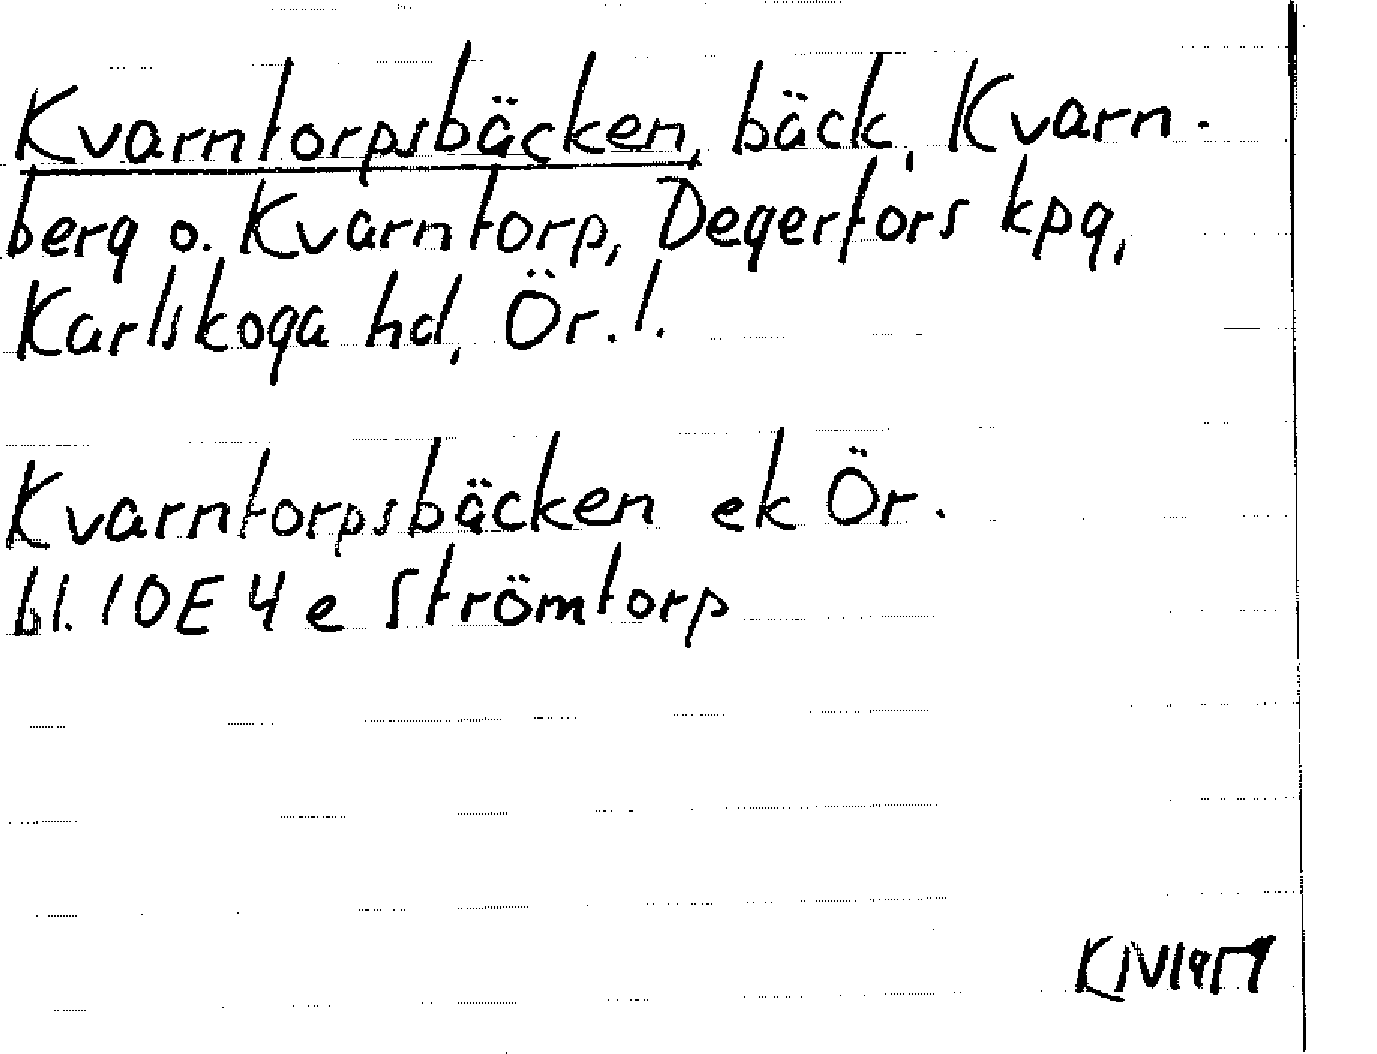 Kvarntorpsbäcken, bäck, Kvarn-
berg o. Kvarntorp, Degerfors kpg,
Karlskoga hd, Ör. l.
Kvarntorpsbäcken ek Ör.
bl. 10E 4 e Strömtorp
KN1959